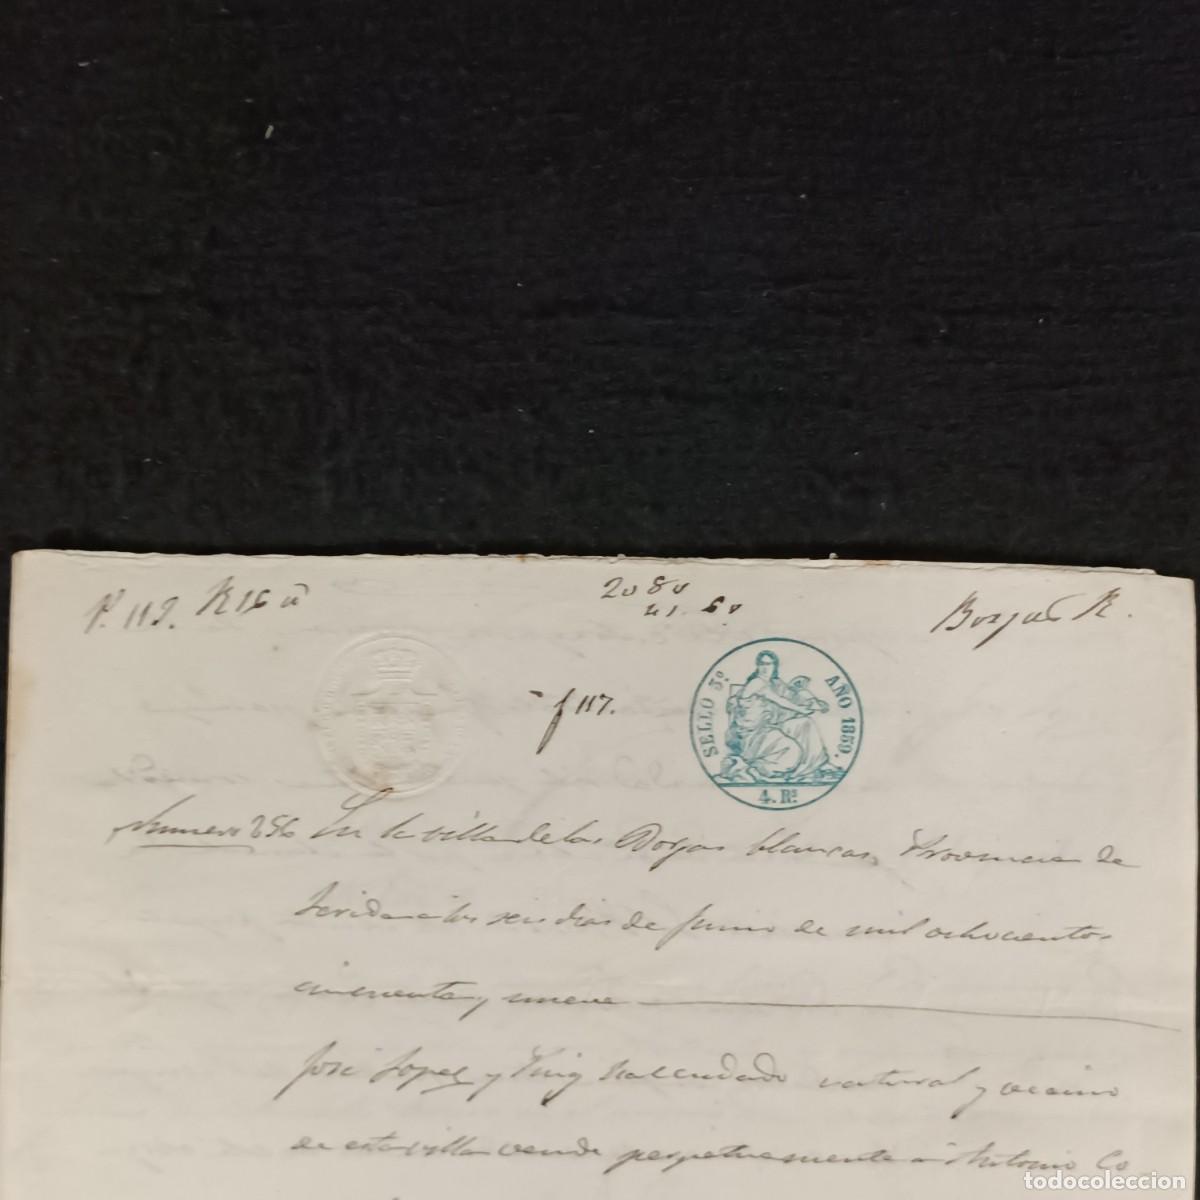 Pº 112. R 16 ú
2080
41.60
Borjas R.
f 117.
SELLO 3º AÑO 1859.
4. Rs
Numero 256 En la villa de las Borjas blancas, Provincia de
Lerida a los seis dias de Junio de mil ochocientos
cincuenta y nueve
José Lopez y Puig Hacendado natural y vecino
de esta villa vende perpetuamente a Antonio Co
todocoleccion